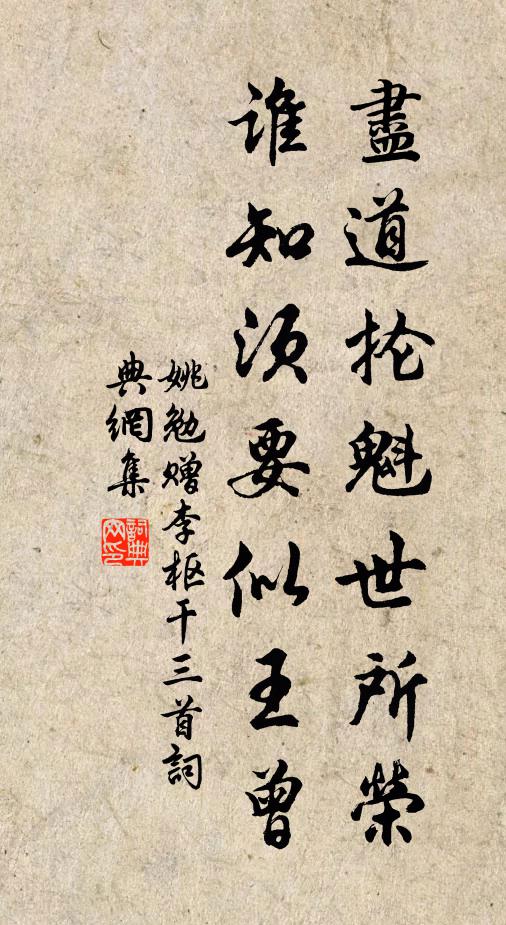 盡道抡魁世所榮
誰知須要似王曾
姚勉贈李枢干三首詞
典網集
詞典網印